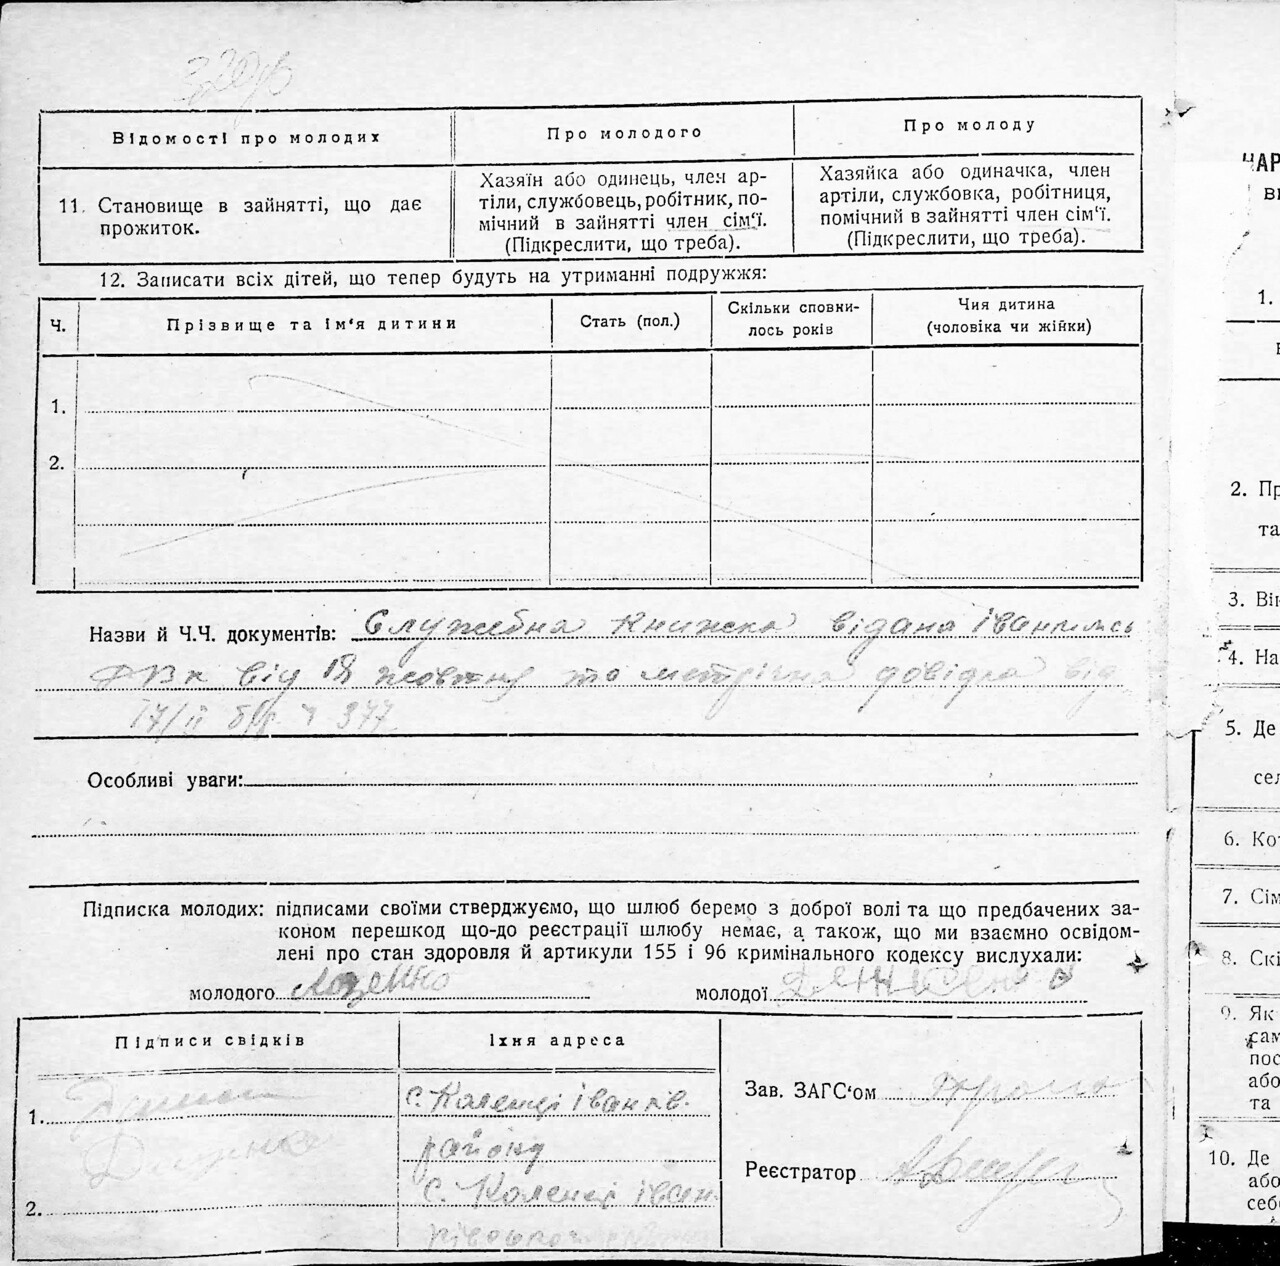 Відомості про молодих
Про молодого
Про молоду
11. Становище в зайнятті, що дає
прожиток.
Хазяїн або одинець, член ар-
тіли, службовець, робітник, по-
мічний в зайнятті член сім‘ї.
(Підкреслити, що треба).
Хазяйка або одиначка, член
артіли, службовка, робітниця,
помічний в зайнятті член сім‘ї.
(Підкреслити, що треба).
12. Записати всіх дітей, що тепер будуть на утриманні подружжя:
Ч.
Прізвище та ім‘я дитини
Стать (пол.)
Скільки сповни-
лось років
Чия дитина
(чоловіка чи жінки)
1.
2.
Назви й Ч.Ч. документів: Службова книжка видана
від жовтня та метрична довідка від
17/II 377
Особливі уваги:
Підписка молодих: підписами своїми стверджуємо, що шлюб беремо з доброї волі та що предбачених за-
коном перешкод що-до реєстрації шлюбу немає, а також, що ми взаємно освідом-
лені про стан здоровля й артикули 155 і 96 кримінального кодексу вислухали:
молодого
молодої
Підписи свідків
Їхня адреса
1.
с. Коленці Іванків.
району
2.
с. Коленці Іван-
Зав. ЗАГС‘ом
Реєстратор
1.
2. Пр
та
3. Він
4. На
5. Де
сел
6. Ко
7. Сім
8. Скі
9. Як
сам
пос
або
та
10. Де
або
себе